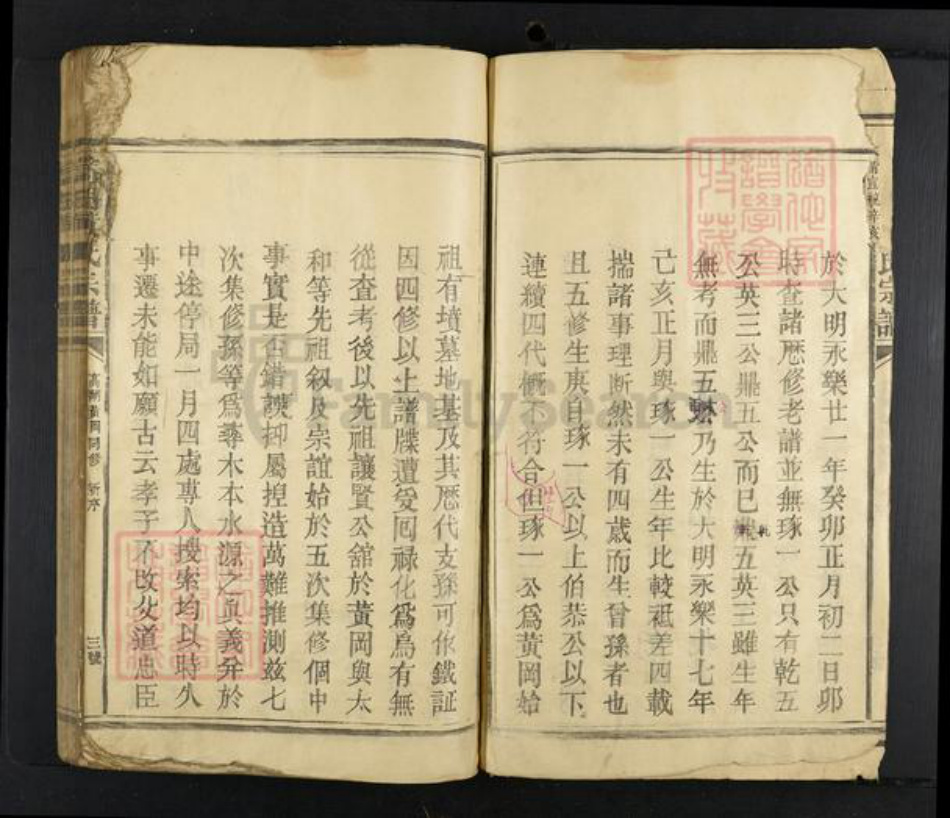 氏宗譜
於大明永樂廿一年癸卯正月初二日卯
時查諸歷修老譜並無琢一公只有乾五
公英三公鼎五公而已乾五英三雖生年
無考而鼎五公乃生於大明永樂十七年
己亥正月與琢一公生年比較祗差四載
揣諸事理断然未有四歲而生曾孫者也
且五修生庚自琢一公以上伯恭公以下
連續四代概不符合但琢一公爲黃岡始
祖有墳墓地基及其歷代支孫可作鐵証
因四修以上譜牒遭爰囘禄化爲烏有無
從查考後以先祖讓賢公舘於黃岡與太
和等先祖叙及宗誼始於五次集修個中
事實是否錯誤抑屬揑造萬難推測兹七
次集修孫等爲尋木本水源之眞義弁於
中途停局一月四處專人搜索均以時久
事遷未能如願古云孝子不改父道忠臣
新序
三號
FamilySearch